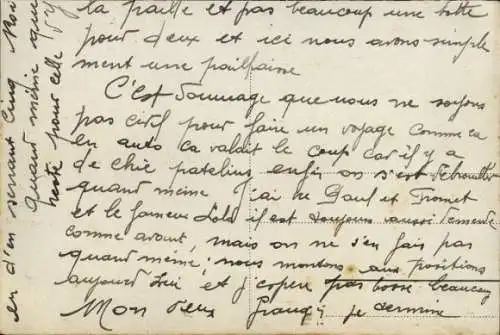 la paille et pas beaucoup une botte
pour deux et ici nous avons simple
ment une paillasse
C'est dommage que nous ne soyons
pas civil pour faire un voyage comme ca
en auto ca valait le coup car il y a
de chic patelins enfin on s'est débrouillé
quand même j'ai le Paul et
et le fameux Lolo il est toujours aussi
comme avant, mais on ne s'en fais pas
quand même; nous montons aux positions
aujourd'hui et j'espere pas bosse beaucoup
Mon vieux je termine
en d'en serrant cinq
quand même que
reste pour celle